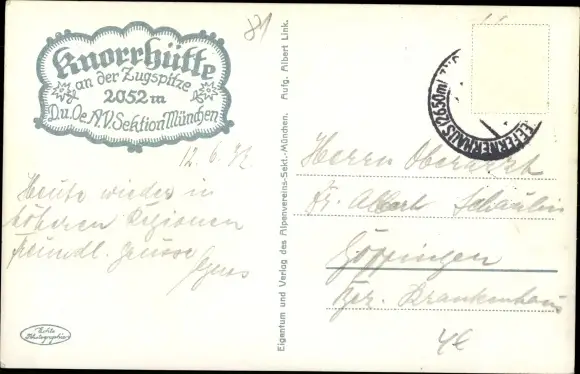 Knorrhütte
an der Zugspitze
2052 m
D.u.Oe.A.V. Sektion München
81
12. 6. 32
Heute wieder in
höheren Regionen
freundl. Grüsse
Echte
Photographie
Eigentum und Verlag des Alpenvereins-Sekt.-München. Aufg. Albert Link.
(2650m)
Herrn Oberarzt
Dr. Albert Schäuble
Göppingen
Bez. Krankenhaus